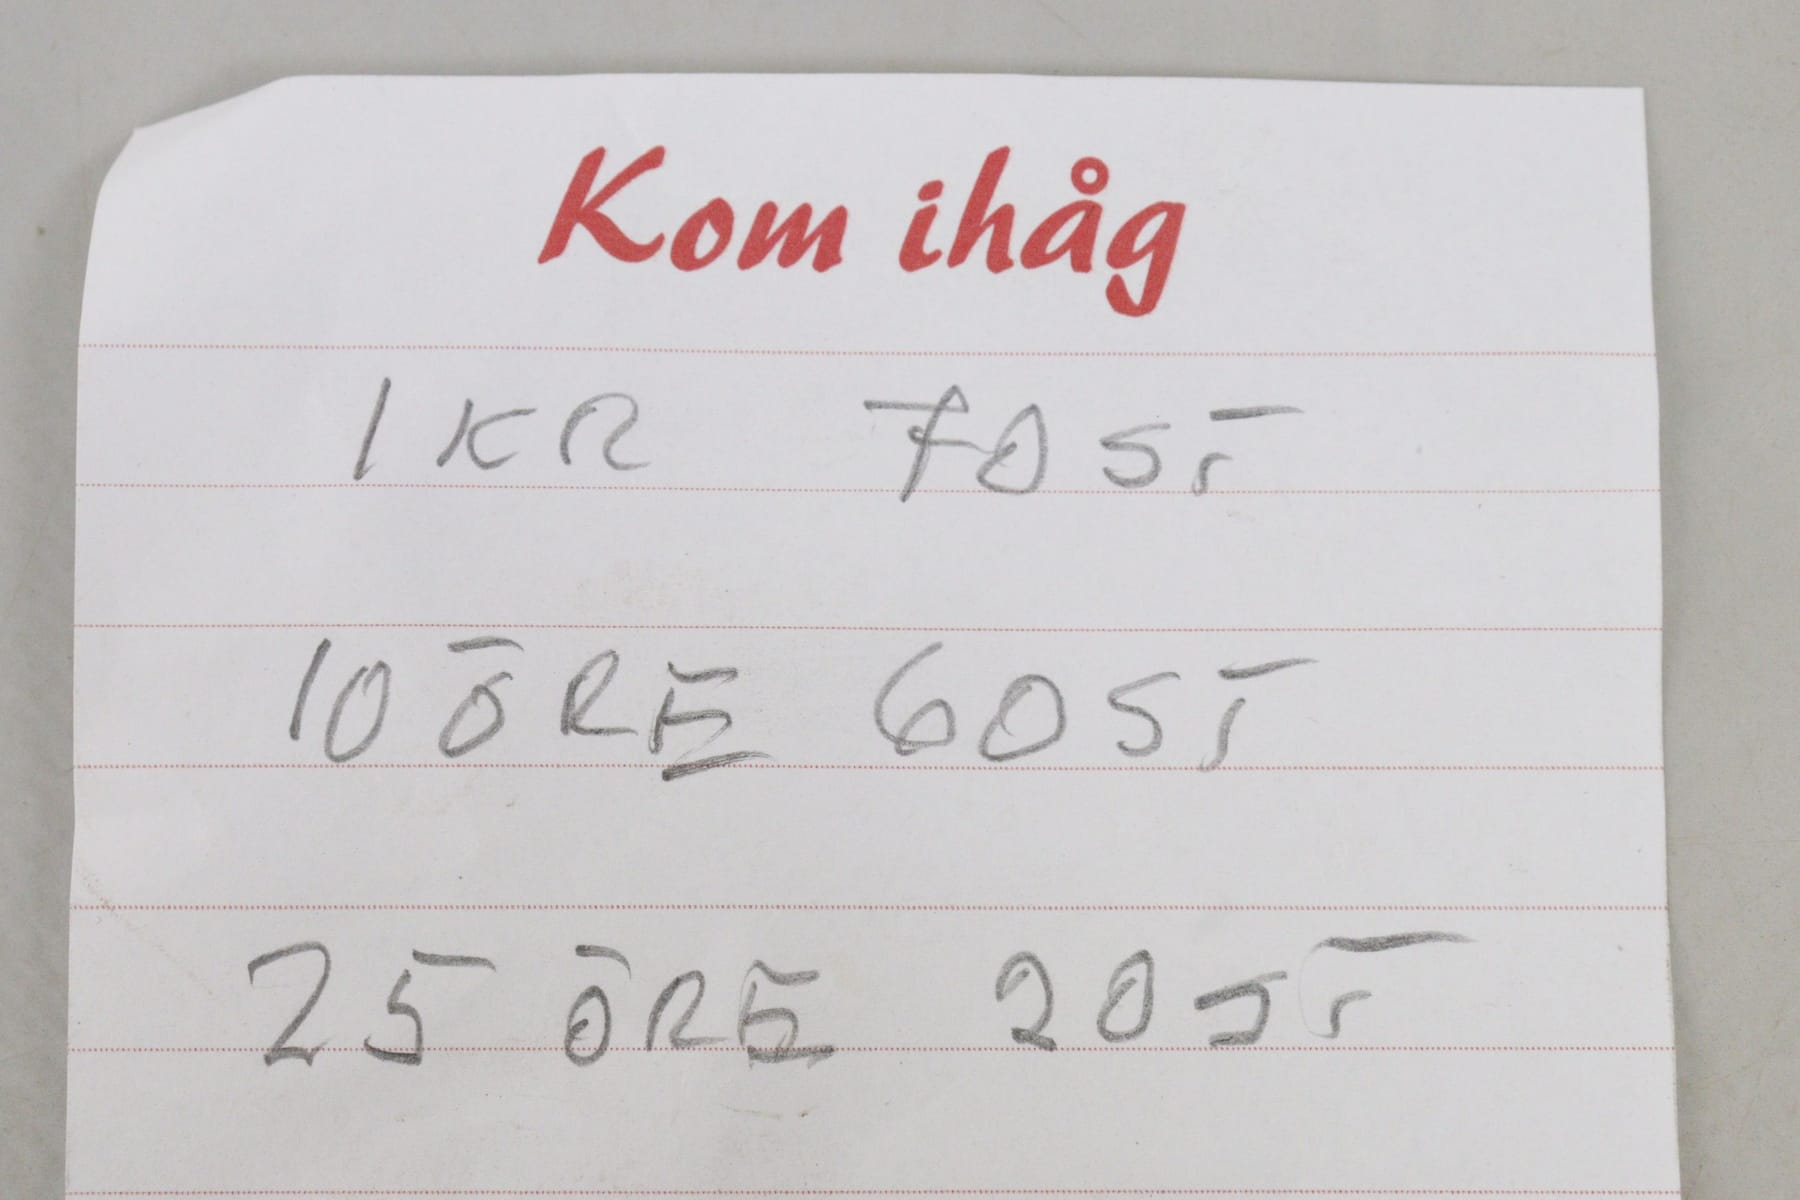 Kom ihåg
1 KR 70 ST
10 ÖRE 60 ST
25 ÖRE 20 ST